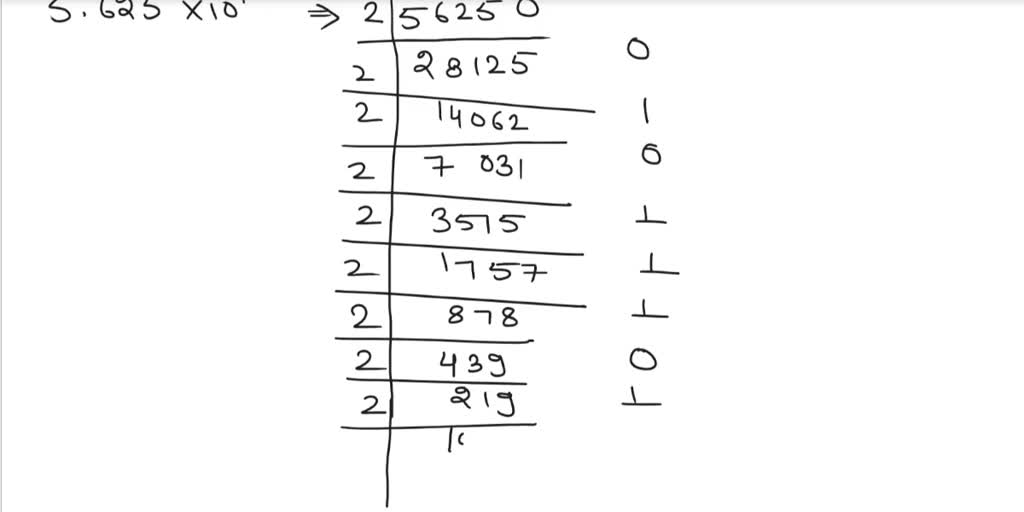 5.625 ×10 ⇒ 2 56250
2 28125 0
2 14062 1
2 7031 0
2 3515 1
2 1757 1
2 878 1
2 439 0
2 219 1
1